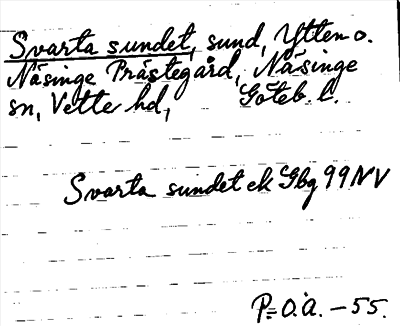 Svarta sundet, sund, Ytten o.
Näsinge Prästegård, Näsinge
sn, Vette hd, Göteb. l.
Svarta sundet ek Gbg 99 NV
P=O.Å. -55.